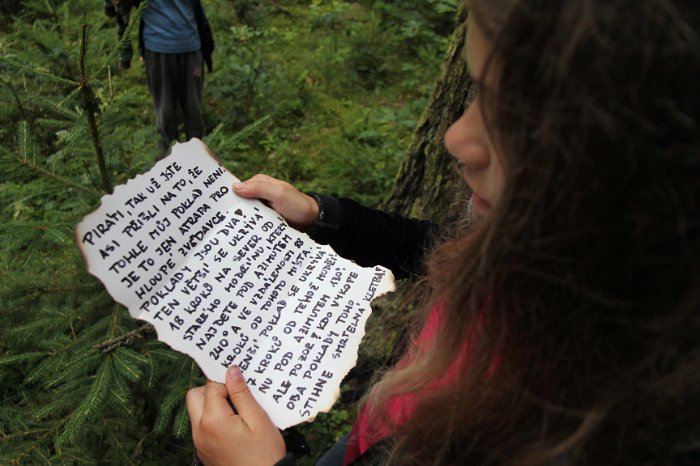 PIRÁTI, TAK UŽ JSTE
ASI PŘIŠLI NA TO, ŽE
TOHLE MŮJ POKLAD NENÍ!
JE TO JEN ATRAPA PRO
HLOUPÉ ZVĚDAVCE!
POKLADY JSOU DVA!
TEN VĚTŠÍ SE UKRÝVÁ
18 KROKŮ NA SEVER OD
STARÉHO MODŘÍNU, KTERÝ
NAJDETE POD AZIMUTEM
240° A VE VZDÁLENOSTI 88
KROKŮ OD TOHOTO MÍSTA.
MENŠÍ POKLAD SE UKRÝVÁ
7 KROKŮ OD TÉHOŽ MODŘÍ-
NU POD AZIMUTEM 130°.
ALE POZOR! KDO VYKOPE
OBA POKLADY TOHO
STIHNE SMRTELNÁ KLETBA!